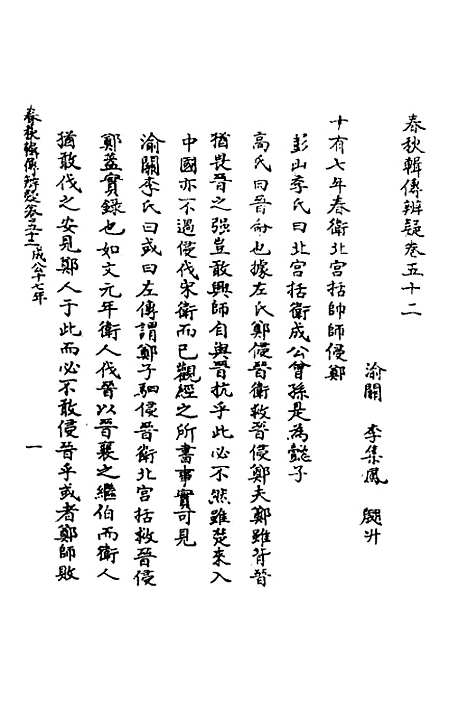 春秋輯傳辨疑卷五十二
渝關　李集鳳　翽升
十有七年春衛北宮括帥師侵鄭
彭山季氏曰北宮括衛成公曾孫是為懿子
高氏曰晉命也據左氏鄭侵晉衛救晉侵鄭夫鄭雖背晉
猶畏晉之强豈敢興師自與晉抗乎此必不然雖楚來入
中國亦不過侵伐宋衛而已觀經之所書事實可見
渝關李氏曰或曰左傳謂鄭子駟侵晉衛北宮括救晉侵
鄭蓋實録也如文元年衛人伐晉以晉襄之繼伯而衛人
猶敢伐之安見鄭人于此而必不敢侵晉乎或者鄭師敗
春秋輯傳辨疑卷五十二　成公十七年
一